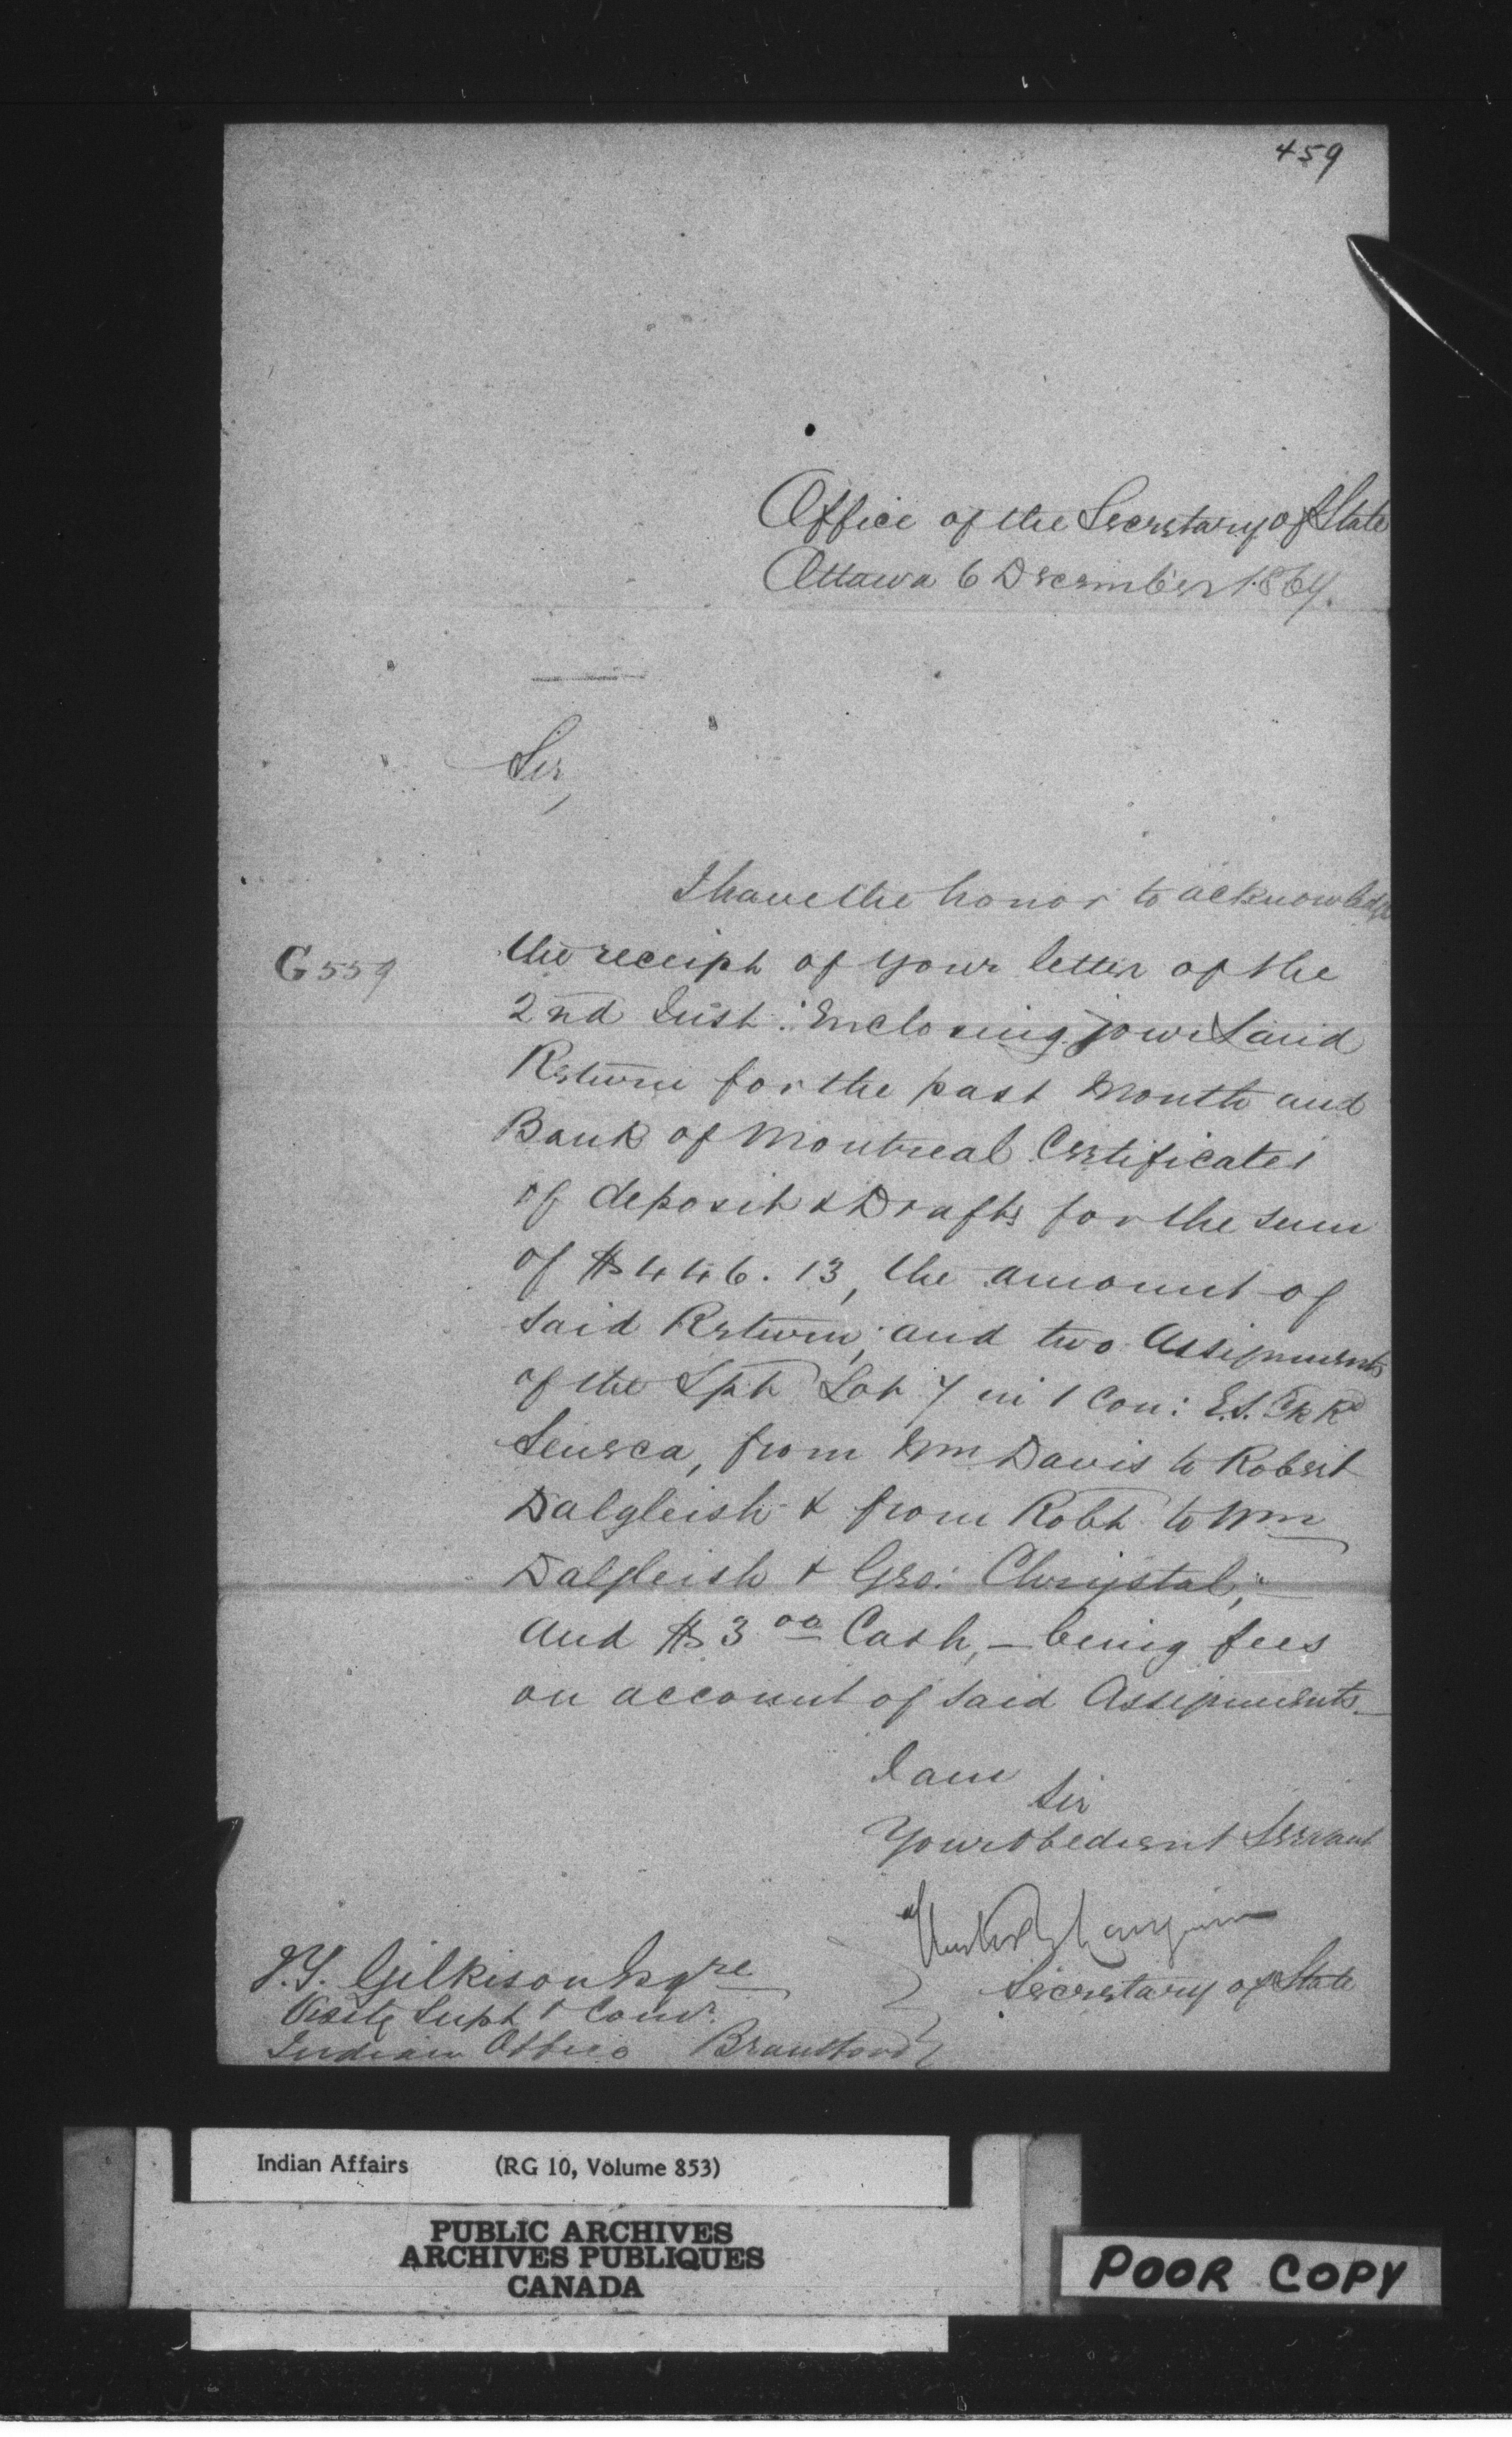 459
Office of the Secretary of State
Ottawa 6 December 1867.
Sir,
I have the honor to acknowledge
G 559
the receipt of your letter of the
2nd Inst: Enclosing your Land
Return for the past Month and
Bank of Montreal Certificates
of deposit & Drafts for the sum
of $446.13, the amount of
said Return; and two Assignments
of the Spt Lot 7 in 1 Con: E.S. Pk Rd
Seneca, from Wm Davis to Robert
Dalgleish & from Robt to Wm
Dalgleish & Geo: Chrystal;
and $3 00 Cash, — being fees
on account of said Assignments.—
I am
Sir
Your Obedient Servant
Hector L. Langevin
Secretary of State
J.T. Gilkison Esqre
Visitg Supt & Comr.
Indian Office Brantford
Indian Affairs (RG 10, Volume 853)
PUBLIC ARCHIVES
ARCHIVES PUBLIQUES
CANADA
POOR COPY